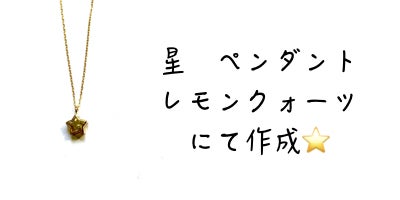 星　ペンダント
レモンクォーツ
にて作成⭐